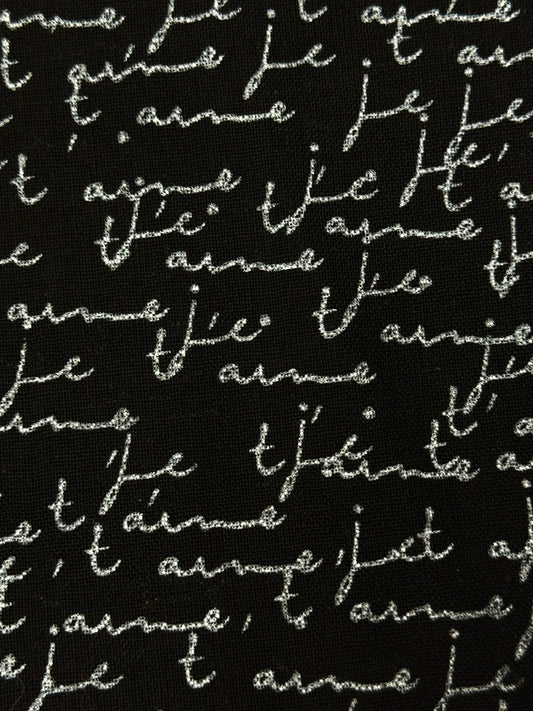 je t aime
t aime je t aime
t aime je je
t' aime t je je t' a
t je aime t je aime t
aime je t je aime
je t aime je
aime t' je t aime t
je t' aime
t aime
t' aime, je t a
t aime, t aime
je t aime je